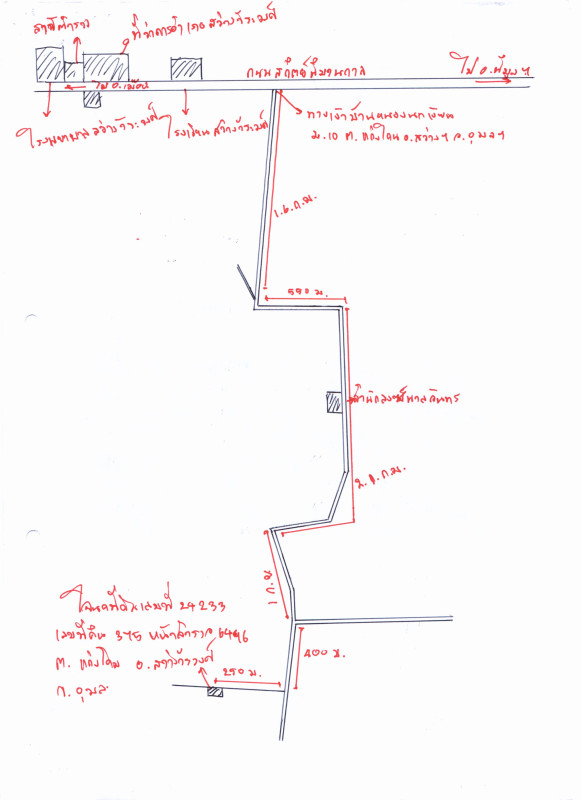 สถานีตำรวจ
ที่ว่าการอำเภอสว่างวีระวงศ์
ถนนสถิตย์นิมานกาล
ไป อ.พิบูลฯ
ไป อ.เมือง
โรงพยาบาลสว่างวีระวงศ์
โรงเรียนสว่างวีระวงศ์
ทางเข้าบ้านหนอง
ม.10 ต.แก่งโดม อ.สว่างฯ จ.อุบลฯ
1.6 ก.ม.
550 ม.
สำนักสงฆ์
ก.ม.
1 ก.ม.
โฉนดที่ดินเลขที่ 24233
เลขที่ดิน 375 หน้าสำรวจ 6496
ต. แก่งโดม อ. สว่างวีรวงศ์
จ. อุบล
250 ม.
400 ม.